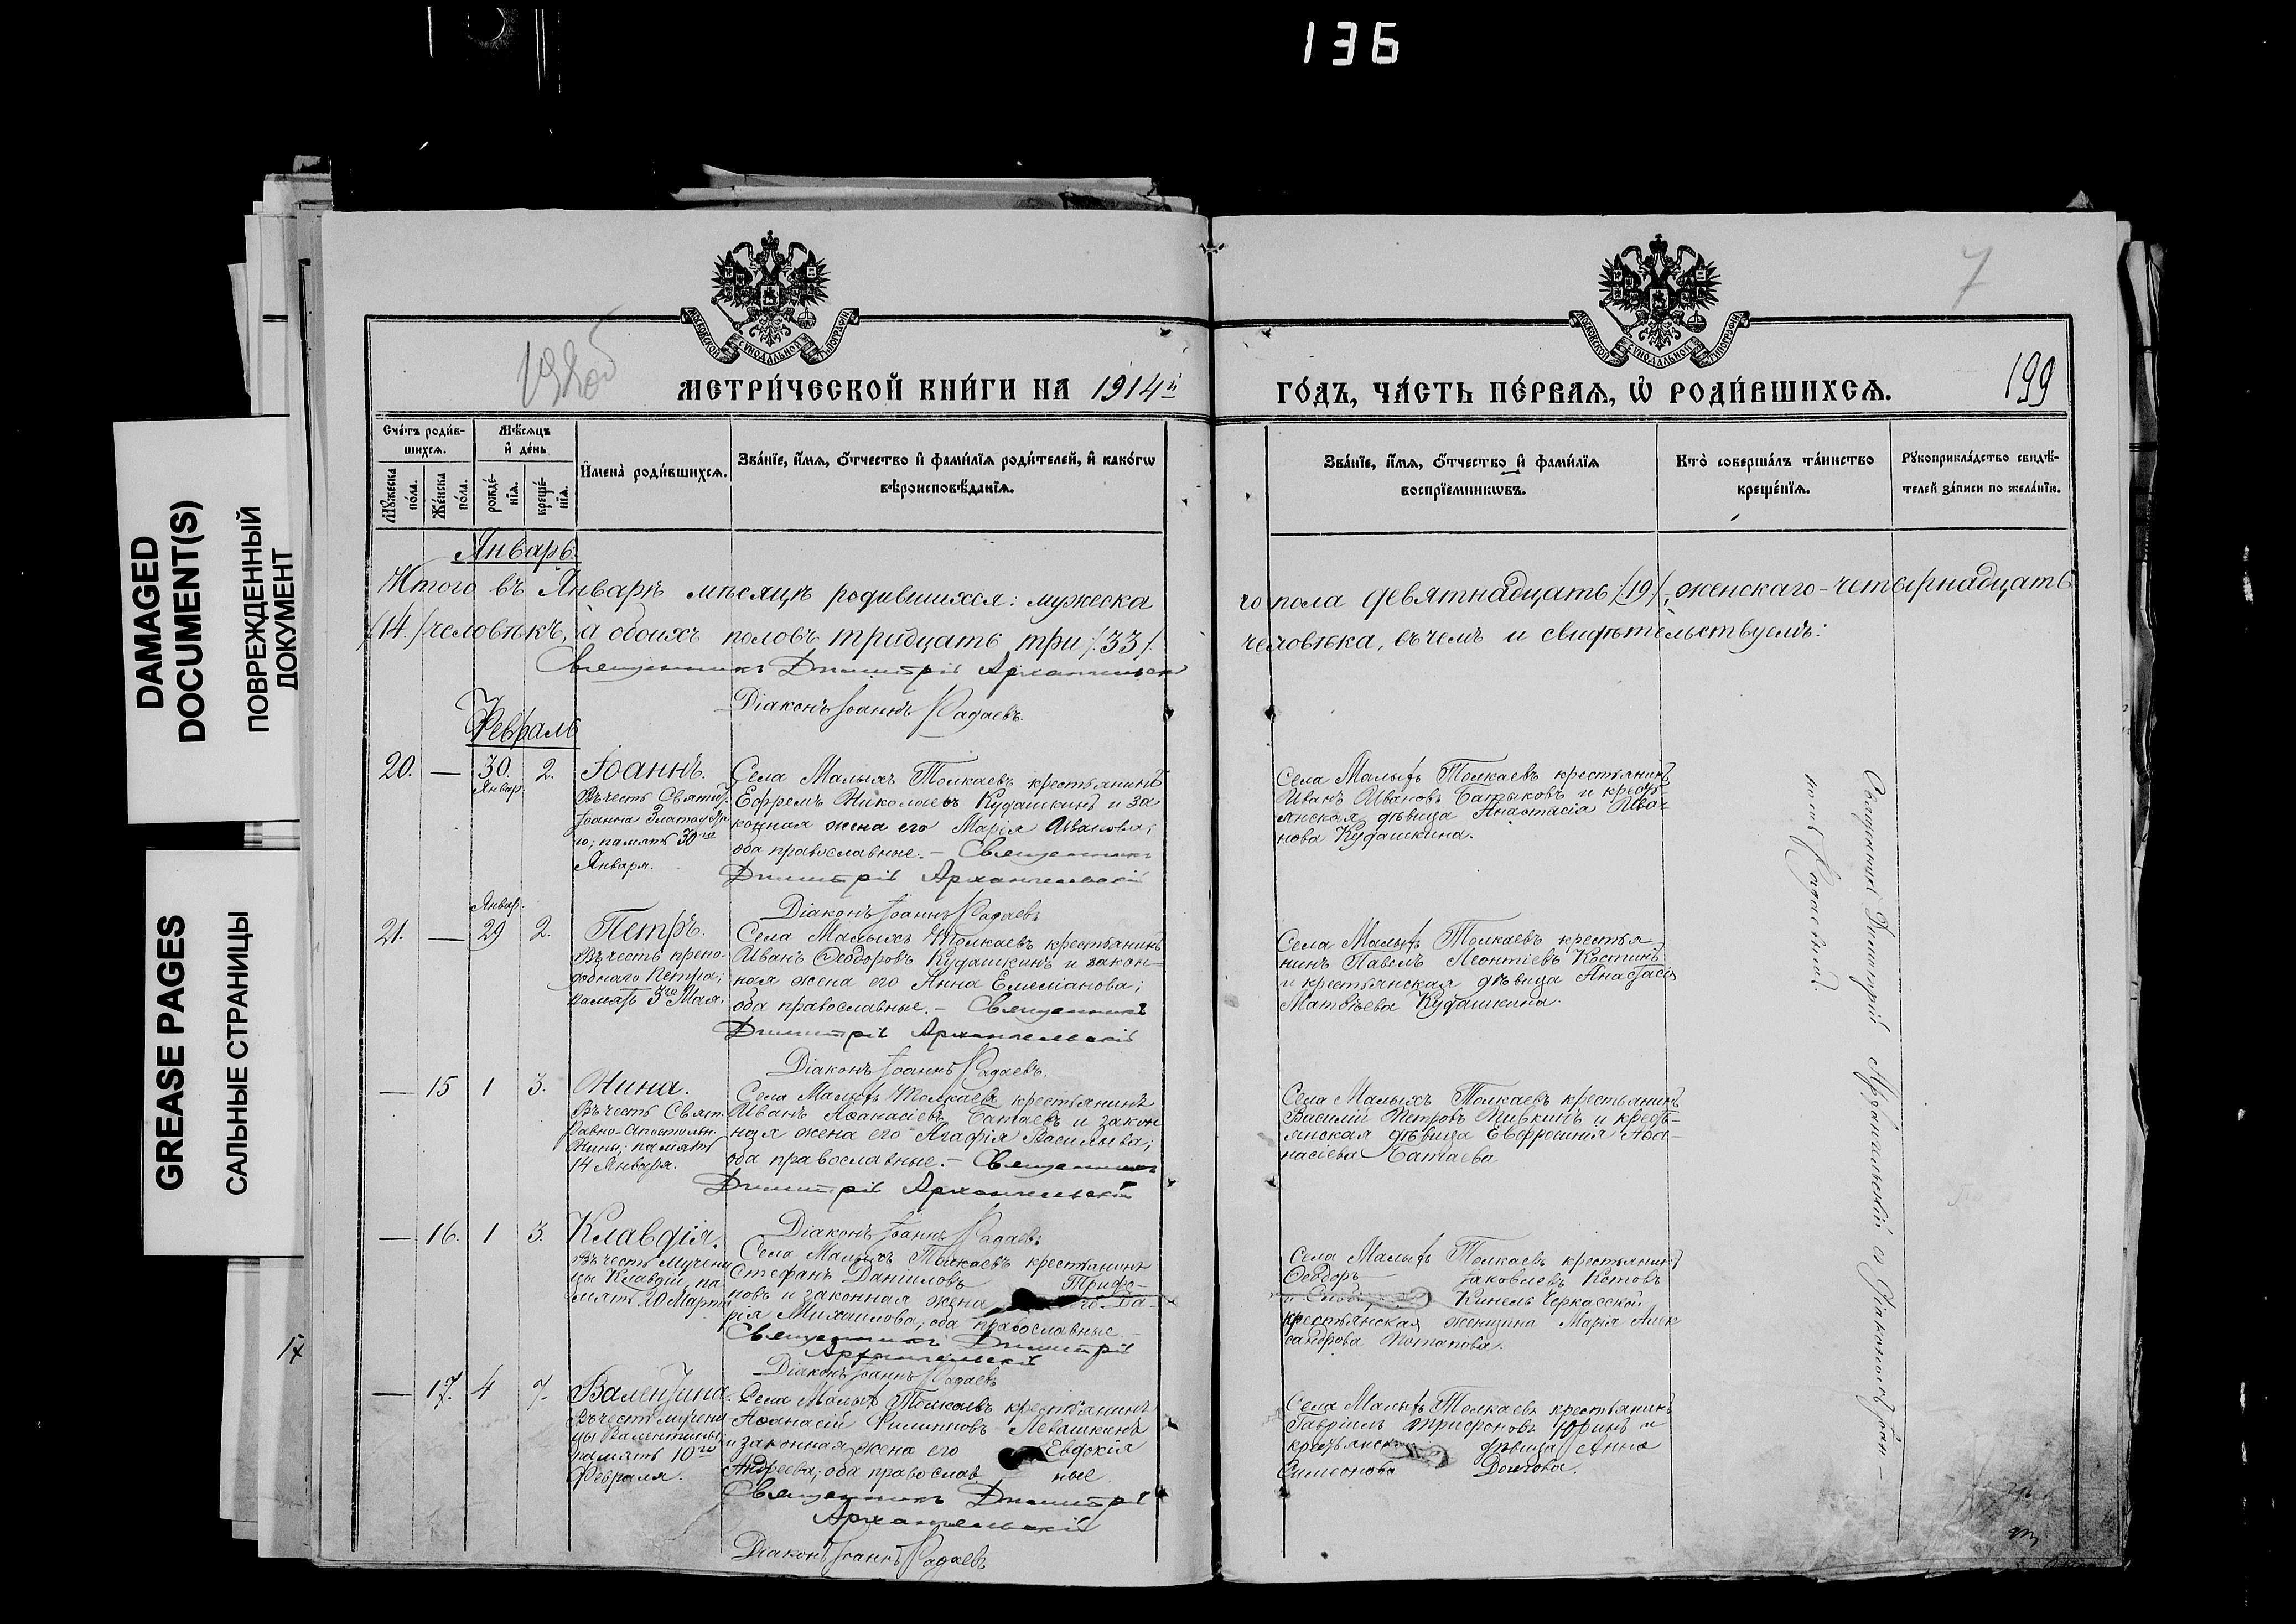 136
DAMAGED
DOCUMENT(S)
ПОВРЕЖДЕННЫЙ
ДОКУМЕНТ
GREASE PAGES
САЛЬНЫЕ СТРАНИЦЫ
7
198об
199
МОСКОВСКОЙ СѴНОДАЛЬНОЙ ТИПОГРАФІИ
МОСКОВСКОЙ СѴНОДАЛЬНОЙ ТИПОГРАФІИ
МЕТРИ́ЧЕСКОЙ КНИ́ГИ НА 1914й
ГО́ДЪ, ЧА́СТЬ ПЕ́РВАЯ, Ѡ РОДИ́ВШИХСѦ.
Сче́тъ роди́в-
шихсѧ.
Мꙋ́жеска
по́ла.
Же́нска
по́ла.
Мѣ́сѧцъ
и҆ де́нь
рожде́-
нїѧ.
креще́-
нїѧ.
И҆мена̀ роди́вшихсѧ.
Зва́нїе, и҆́мѧ, ѻ҆́тчество и҆ фами́лїѧ роди́телей, и҆ како́гѡ
вѣроисповѣ́данїѧ.
Зва́нїе, и҆́мѧ, ѻ҆́тчество и҆ фами́лїѧ
воспрїе́мникѡвъ.
Кто̀ соверша́лъ та́инство
креще́нїѧ.
Рꙋкоприкла́дство свидѣ́-
телей за́писи по жела́нїю.
Январь
Итого въ Январѣ мѣсяцѣ родившихся: мужеска
го пола девятнадцать /19/, женскаго - четырнадцать
/14./ человѣкъ, а обоихъ половъ тридцать три /33/
человѣка, въ чемъ и свидѣтельствуемъ:
Священникъ Димитрій Архангельскій
Діаконъ Іоаннъ Радаевъ.
Февраль
20. — 30. Январ. 2. Іоаннъ.
Въ честь Святит.
Іоанна Златоуста-
го; память 30го
Января.
Села Малыхъ Толкаевъ крестьянинъ
Ефремъ Николаевъ Кудашкинъ и за-
конная жена его Марія Иванова;
оба православные. - Священникъ
Димитрій Архангельскій
Діаконъ Іоаннъ Радаевъ
Села Малыхъ Толкаевъ крестьянинъ
Иванъ Ивановъ Батяковъ и кресть-
янская дѣвица Анастасія Ива-
нова Кудашкина.
21. — Январ. 29 2. Петръ.
Въ честь препо-
добнаго Петра;
память 3го Мая.
Села Малыхъ Толкаевъ крестьянинъ
Иванъ Ѳеодоровъ Кудашкинъ и закон-
ная жена его Анна Емеліанова;
оба православные. - Священникъ
Димитрій Архангельскій
Діаконъ Іоаннъ Радаевъ.
Села Малыхъ Толкаевъ крестья-
нинъ Павелъ Леонтіевъ Костинъ
и крестьянская дѣвица Анастасія
Матвѣева Кудашкина.
— 15 1 3. Нина.
Въ честь Свят.
Равно-Апостольн.
Нины; память
14 Января.
Села Малыхъ Толкаевъ крестьянинъ
Иванъ Аѳанасіевъ Батаевъ и закон
ная жена его Агафія Васильева;
оба православные. - Священникъ
Димитрій Архангельскій
Діаконъ Іоаннъ Радаевъ
Села Малыхъ Толкаевъ крестьянинъ
Василій Петровъ Пивкинъ и кресть-
янская дѣвица Евфросинія Аѳа-
насіева Батаева
— 16. 1 3. Клавдія.
Въ честь Мучени
цы Клавдіи, па-
мять 20 Марта
Села Малыхъ Толкаевъ крестьянинъ
Стефанъ Даніиловъ Трифо-
новъ и законная жена его Да-
рія Михаилова; оба православные. -
Священникъ Димитрій
Архангельскій
Діаконъ Іоаннъ Радаевъ
Села Малыхъ Толкаевъ крестьянинъ
Ѳеодоръ Іаковлевъ Котовъ
и Слоб. Кинель Черкасской
крестьянская женщина Марія Алек
сандрова Потапова.
17
— 17. 4 7. Валентина.
Въ честь мучени
цы Валентины;
память 10го
Февраля.
Села Малыхъ Толкаевъ крестьянинъ
Аѳанасій Филипповъ Левашкинъ
и законная жена его Евдокія
Андреева; оба православ ные
Священникъ Димитрій
Архангельскій
Діаконъ Іоаннъ Радаевъ
Села Малыхъ Толкаевъ крестьянинъ
Гавріилъ Трифоновъ Юринъ и
крестьянская дѣвица Анна
Симеонова Долгова.
Священникъ Димитрій Архангельскій съ Діакономъ Іоан-
номъ Радаевымъ.